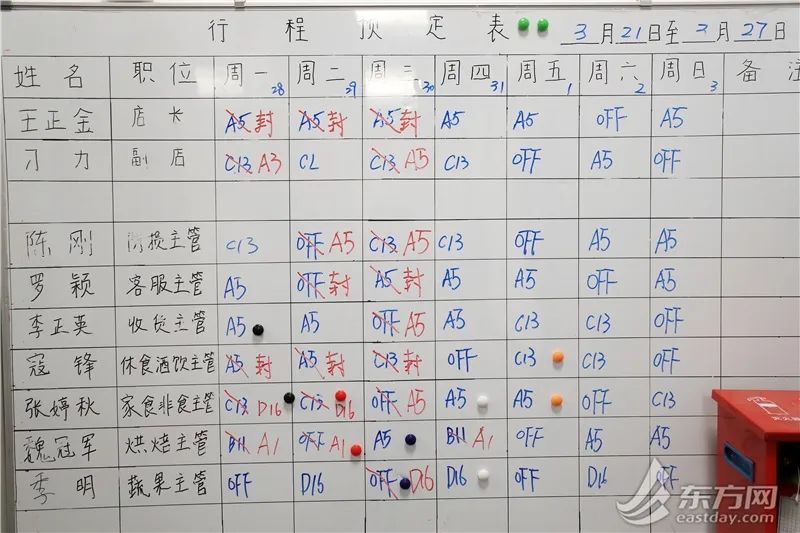 行程预定表 3月21日至3月27日
姓名 职位 周一28 周二29 周三30 周四31 周五1 周六2 周日3 备注
王正金 店长 A5封 A5封 A5封 A5 A5 OFF A5
刁力 副店 C13 A3 CL C13 A5 C13 OFF A5 OFF
陈刚 防损主管 C13 OFF A5 C13 A5 C13 OFF A5 A5
罗颖 客服主管 A5 OFF封 A5封 A5 A5 OFF A5
李正英 收货主管 A5 A5 OFF A5 A5 C13 C13 OFF
寇锋 休食酒饮主管 A5封 A5封 C13封 OFF C13 OFF OFF
张婷秋 家食非食主管 C13 D16 C13 D16 OFF A5 A5 A5 OFF C13
魏冠军 烘焙主管 B11 A1 OFF A1 A5 B11 A1 OFF A5 A5
李明 蔬果主管 OFF D16 OFF D16 D16 OFF D16 OFF
东方网
eastday.com